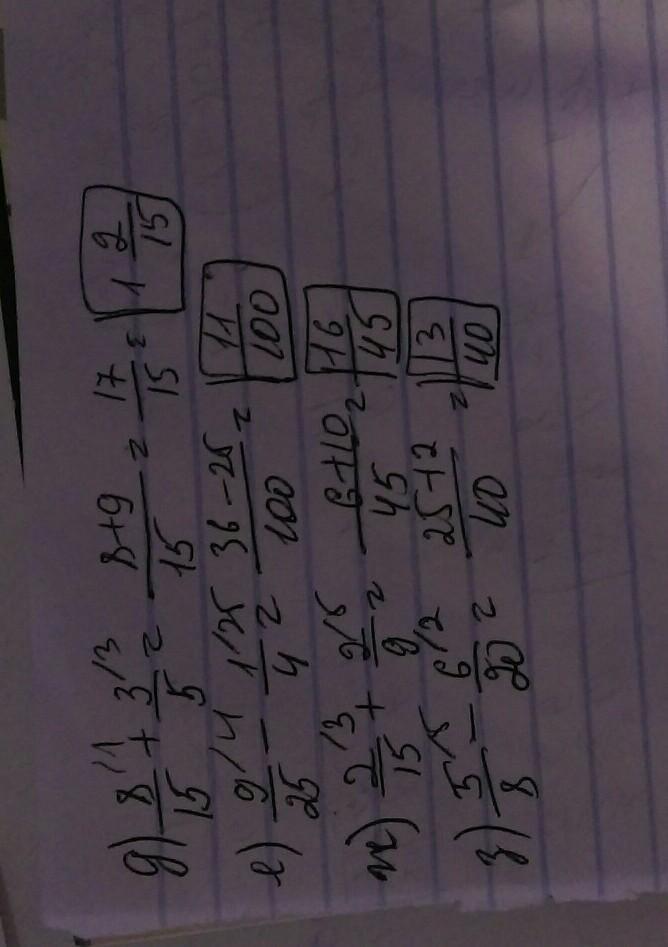 д) 8/15 + 3/5 = (8+9)/15 = 17/15 = 1 2/15
е) 9/25 − 1/4 = (36−25)/100 = 11/100
ж) 2/15 + 2/9 = (6+10)/45 = 16/45
з) 5/8 − 6/20 = (25−12)/40 = 13/40